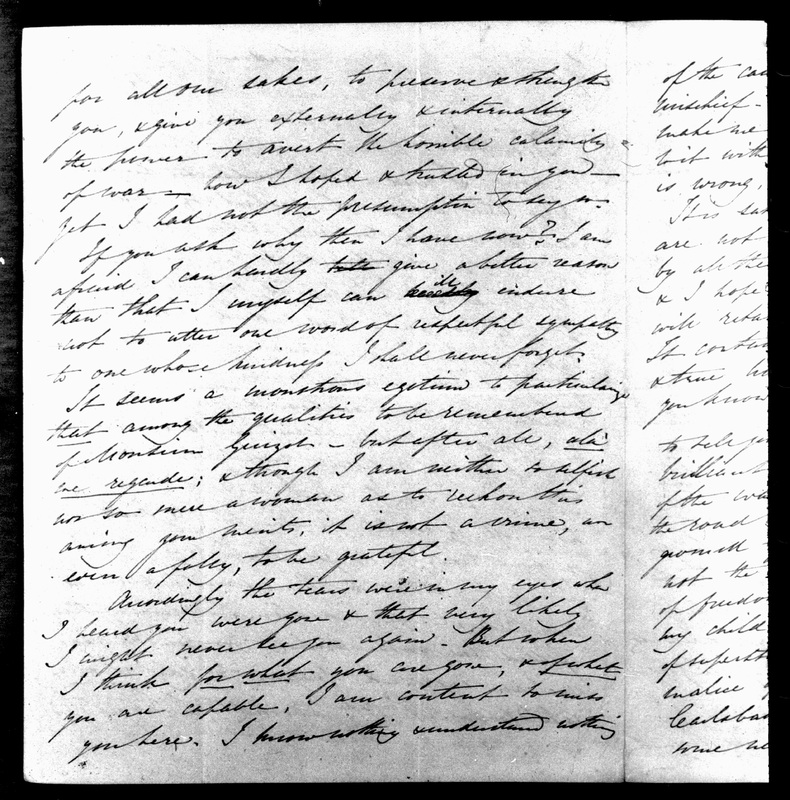 for all our sakes, to preserve & strengthen
you, & give you externally & internally
the power to avert the horrible calamity
of war — how I hoped & trusted in you —
yet I had not the presumption to say so.
If you ask why then I have now? I am
afraid I can hardly give a better reason
than that I myself can ill endure
not to utter one word of respectful sympathy
to one whose kindness I shall never forget.
It seems a monstrous egotism to particularize
that among the qualities to be remembered
of Monsieur Guizot – but after all, cela
me regarde; & though I am neither so selfish
nor so mere a woman as to reckon this
among your merits, it is not a crime, or
even a folly, to be grateful.
Accordingly the tears were in my eyes when
I heard you were gone & that very likely
I might never see you again. But when
I think for what you are gone, & of what
you are capable, I am content to miss
you here. I know nothing & understand nothing
of the
mischief –
make me
with
is wrong,
It is
are not
by all the
& I hope
will
It certain
& true
you know
to
brilliant
of the
the road

not the
of freedo
my child
of superst
malice
Carlsbad
some